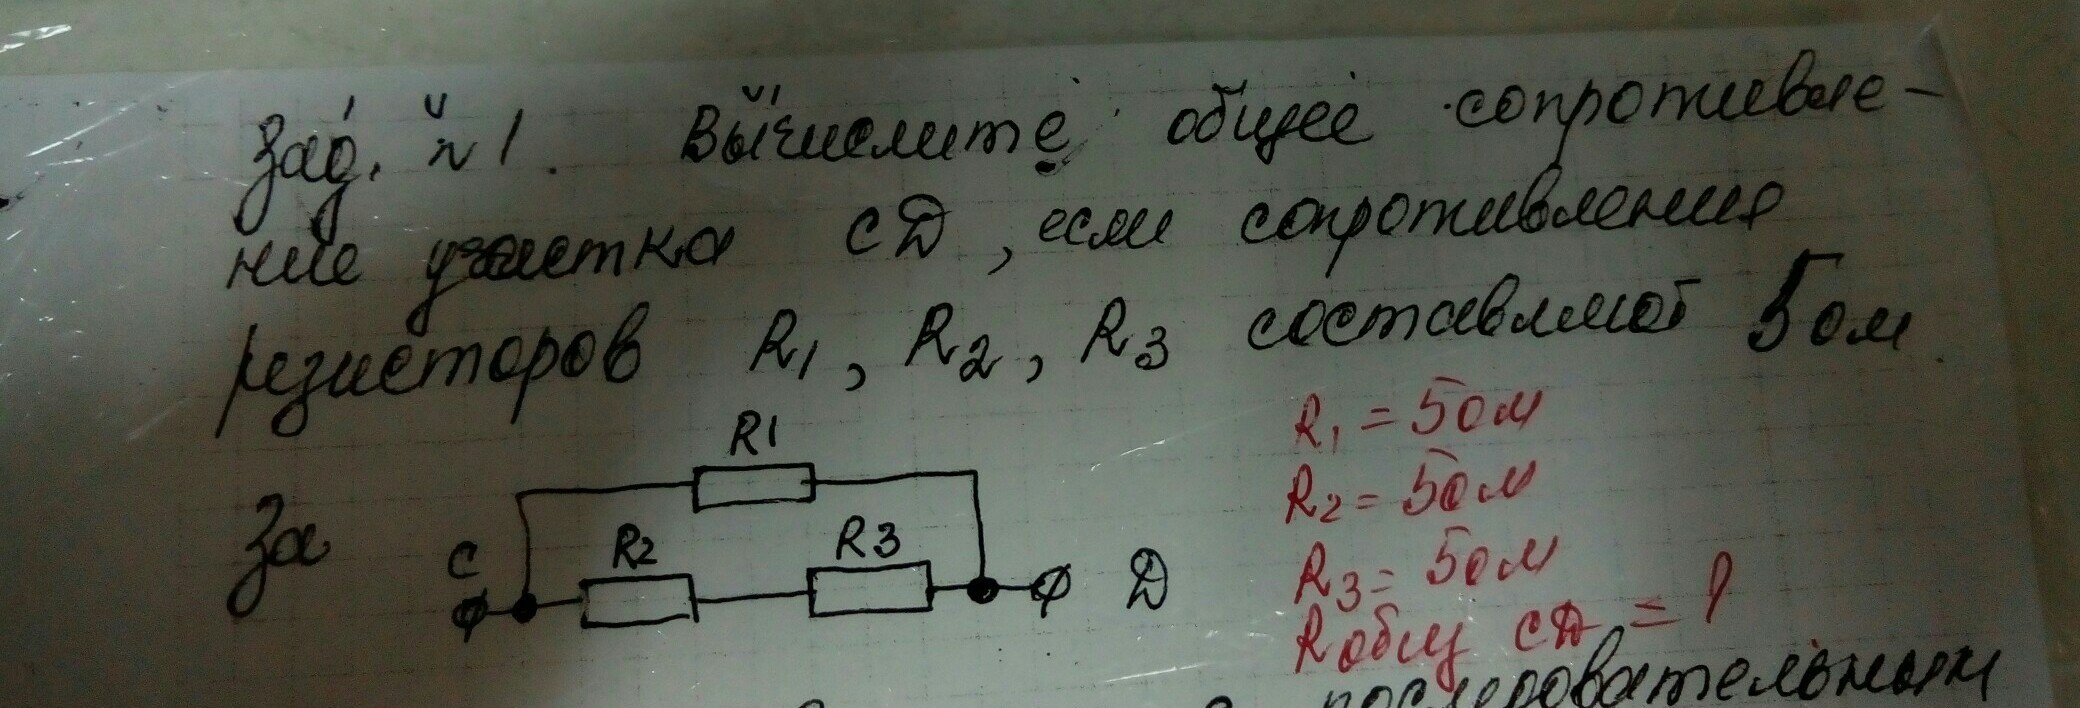 Зад. №1. Вычислите общее сопротивле-
ние участка СД, если сопротивления
резисторов R1, R2, R3 составляют 5 ом.
R1
R1 = 5 ом
R2 = 5 ом
За
С
R2
R3
Д
R3 = 5 ом
R общ СД = ?
последовательном